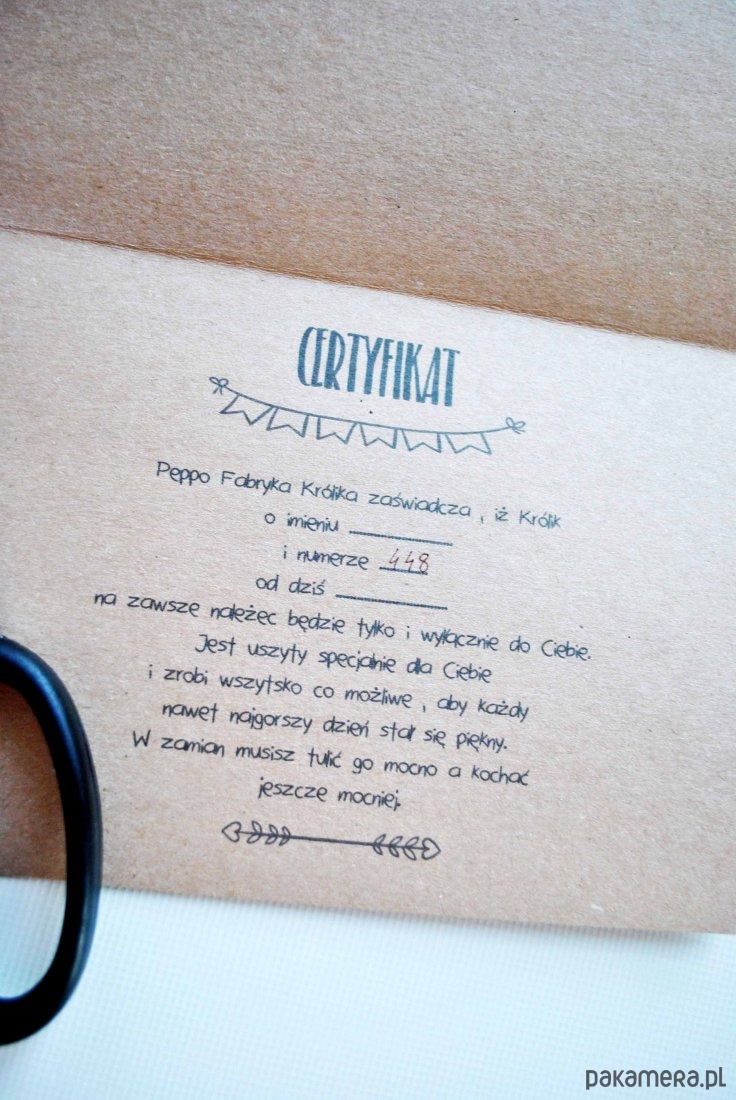 CERTYFIKAT
Peppo Fabryka Królika zaświadcza , iż Królik
o imieniu __________
i numerze 448
od dziś __________
na zawsze należec będzie tylko i wyłącznie do Ciebie.
Jest uszyty specjalnie dla Ciebie
i zrobi wszytsko co możliwe , aby każdy
nawet najgorszy dzień stał się piękny.
W zamian musisz tulić go mocno a kochać
jeszcze mocniej.
pakamera.pl